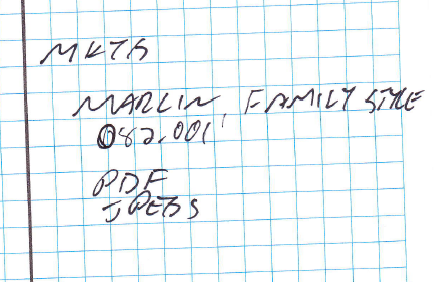 MKTG
MARLIN, FAMILY STYLE
082.001
PDF
JPEGS